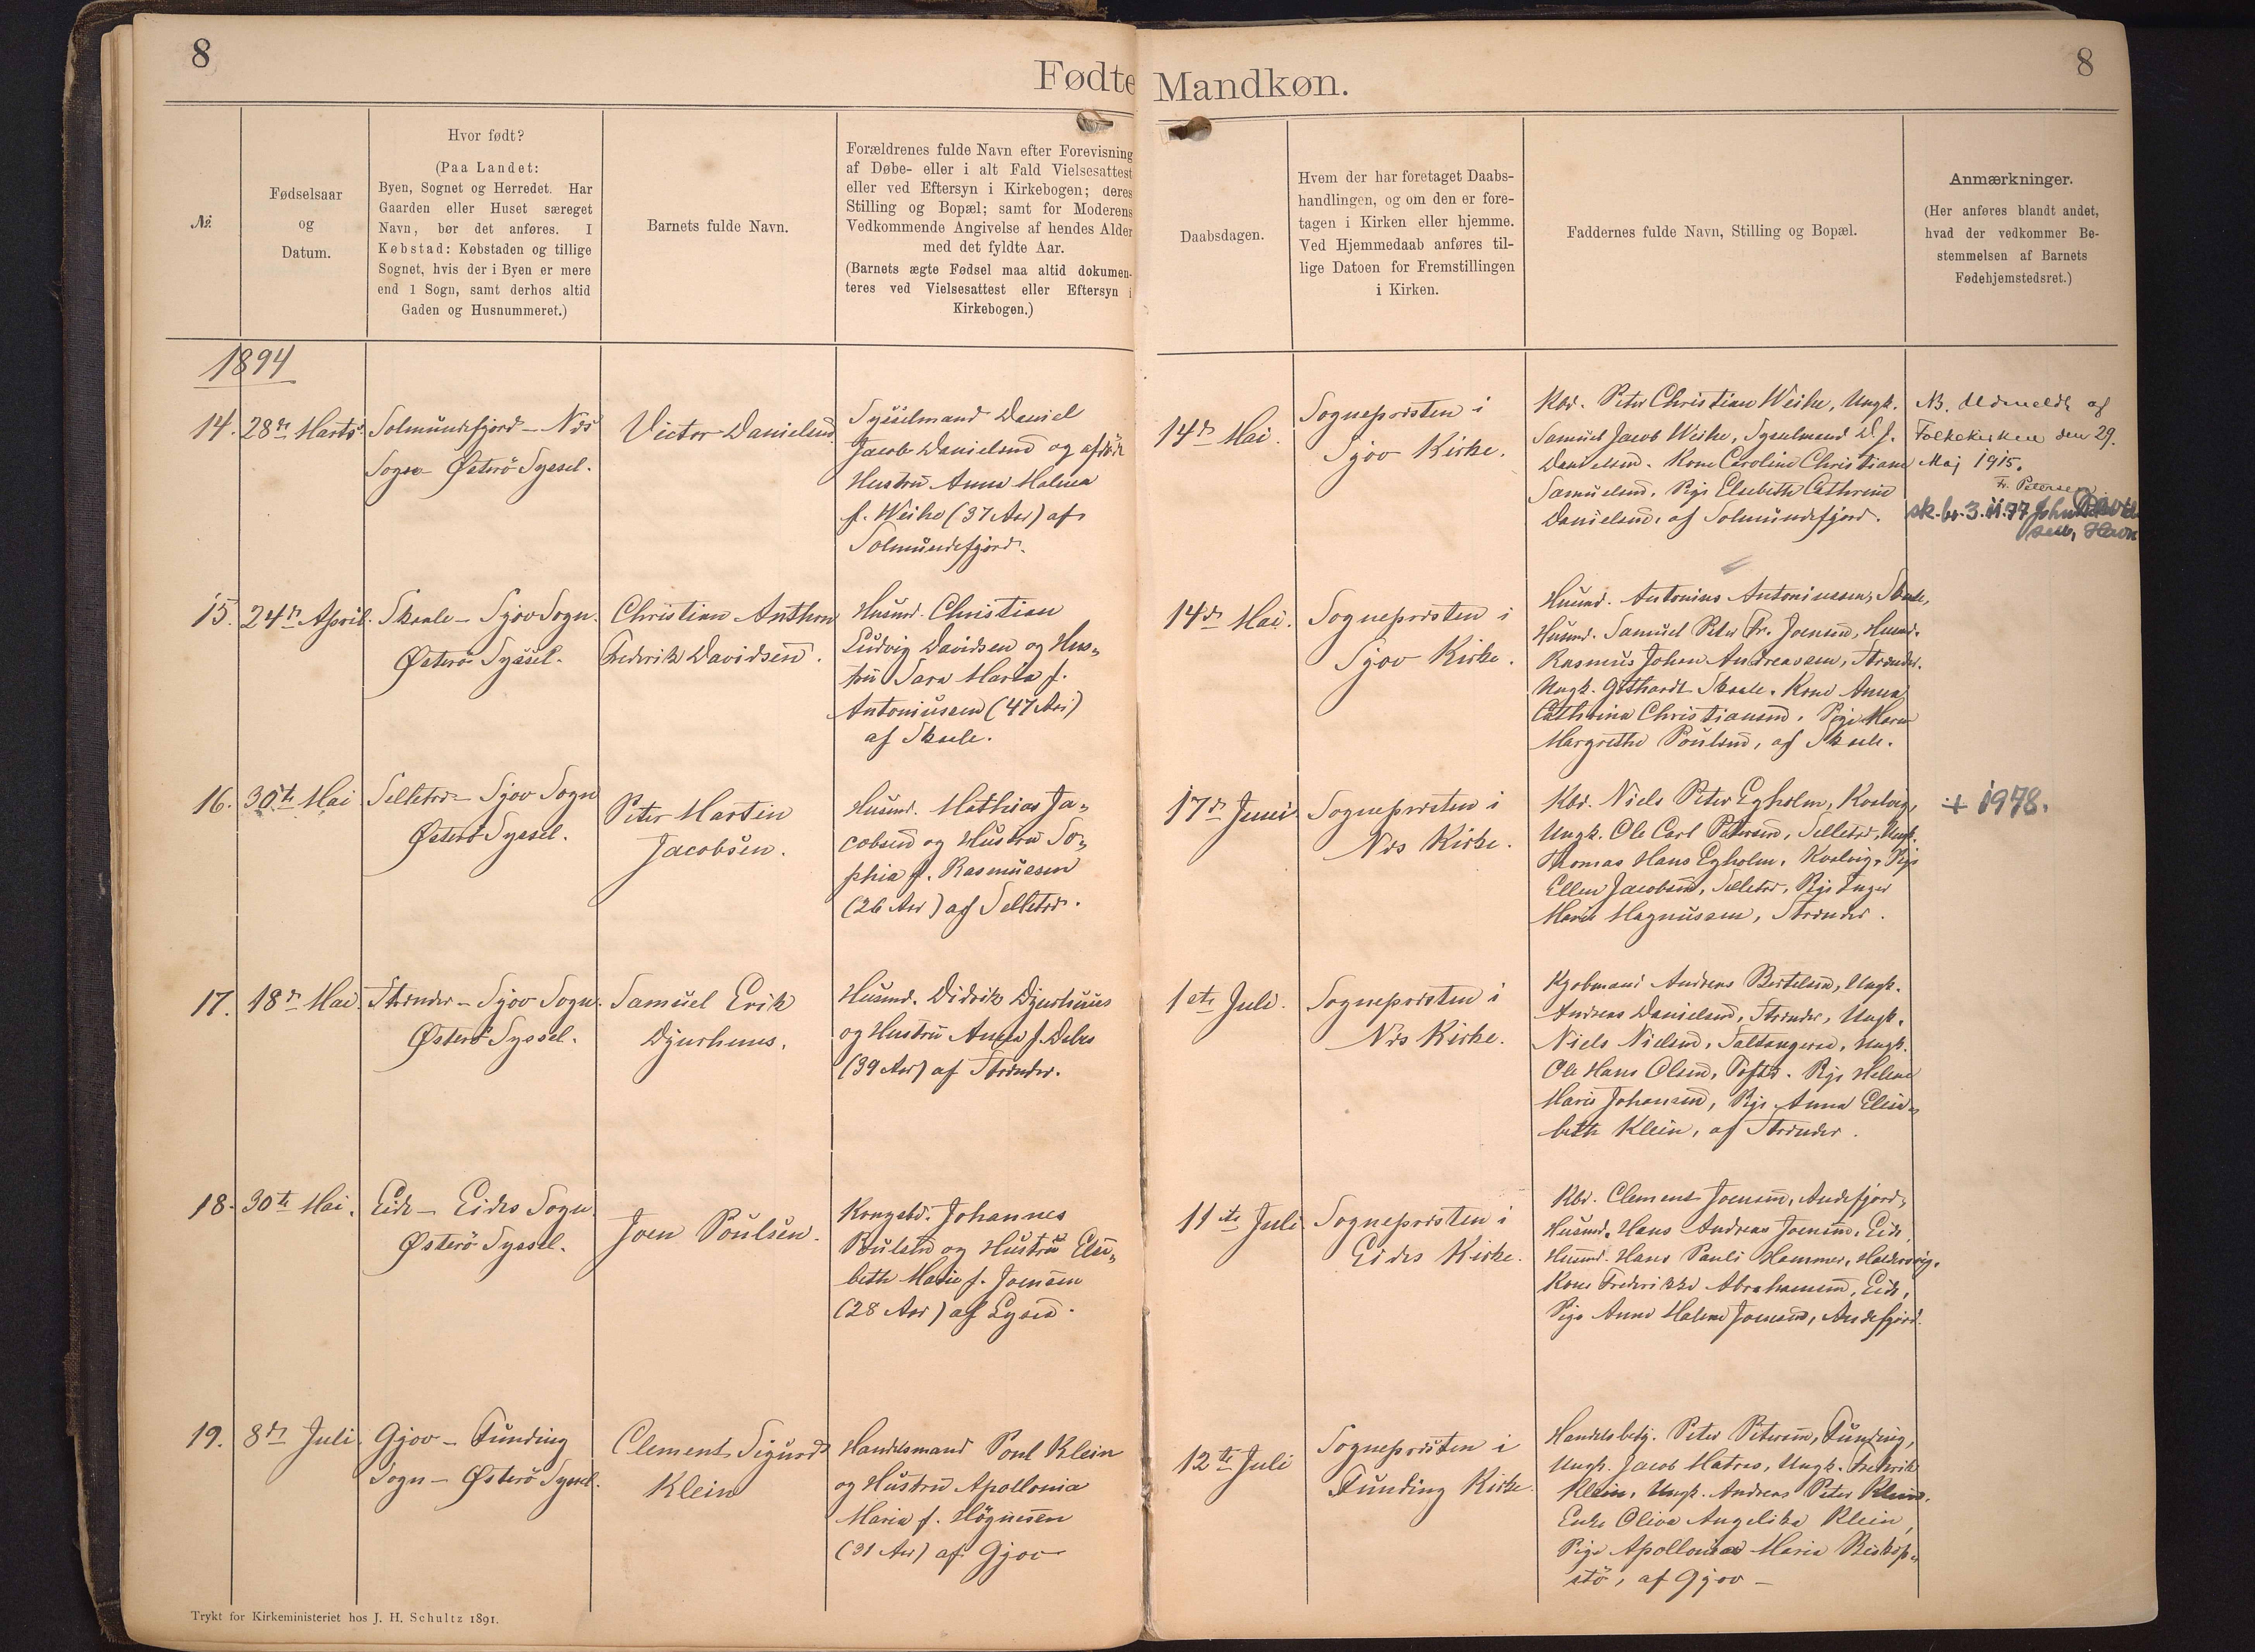 8
Fødte
Nº.
Fødselsaar
og
Datum.
Hvor født?
(Paa Landet:
Byen, Sognet og Herredet. Har
Gaarden eller Huset særeget
Navn, bør det anføres. I
Købstad: Købstaden og tillige
Sognet, hvis der i Byen er mere
end 1 Sogn, samt derhos altid
Gaden og Husnummeret.)
Barnets fulde Navn.
Forældrenes fulde Navn efter Forevisning
af Døbe- eller i alt Fald Vielsesattest
eller ved Eftersyn i Kirkebogen; deres
Stilling og Bopæl; samt for Moderens
Vedkommende Angivelse af hendes Alder
med det fyldte Aar.
(Barnets ægte Fødsel maa altid dokumen-
teres ved Vielsesattest eller Eftersyn i
Kirkebogen.)
1894
14.
28de Marts
Solmundefjord - Næs
Sogn - Østerö Syssel.
Victor Danielsen
Sysselmand Daniel
Jacob Danielsen og afdöde
Hustru Anna Malena
f. Weihe (37 Aar) af
Solmundefjord.
15.
24de April.
Skaale - Sjov Sogn.
Østerö Syssel.
Christian Anthon
Frederik Davidsen.
Husmd. Christian
Ludvig Davidsen og Hus-
tru Sara Maria f.
Antoniussen (47 Aar)
af Skaale.
16.
30te Mai
Selletræ - Sjov Sogn
Østerö Syssel.
Peter Martin
Jacobsen.
Husmd. Mathias Ja-
cobsen og Hustru So-
phia f. Rasmussen
(26 Aar) af Selletræ.
17.
18de Mai.
Strænder - Sjov Sogn.
Østerö Syssel.
Samuel Erik
Djurhuus.
Husmd. Didrik Djurhuus
og Hustru Anna f. Debes
(39 Aar) af Strænder.
18.
30te Mai.
Eide - Eides Sogn.
Østerö Syssel.
Joen Poulsen.
Kongsbd. Johannes
Poulsen og Hustru Elsi-
beth Marie f. Joensen
(28 Aar) af
19.
8de Juli.
Gjov - Funding
Sogn - Østerö Syssel.
Clement Sigurd
Klein
Handelsmand Poul Klein
og Hustru Apollonia
Maria f. Högnesen
(31 Aar) af Gjov
Trykt for Kirkeministeriet hos J. H. Schultz 1891.
Mandkøn.
8
Daabsdagen.
Hvem der har foretaget Daabs-
handlingen, og om den er fore-
tagen i Kirken eller hjemme.
Ved Hjemmedaab anføres til-
lige Datoen for Fremstillingen
i Kirken.
Faddernes fulde Navn, Stilling og Bopæl.
Anmærkninger.
(Her anføres blandt andet,
hvad der vedkommer Be-
stemmelsen af Barnets
Fødehjemstedsret.)
14de Mai.
Sognepræsten i
Sjov Kirke.
Kbd. Peter Christian Weihe, Ungk.
Samuel Jacob Weihe, Sysselmand D. J.
Danielsen. Kone Caroline Christiane
Samuelsen. Pige Elsebeth Cathrine
Danielsen, af Solmundefjord.
NB. Udmeldt af
Folkekirken den 29.
Maj 1915.
Fr. Petersen.
14de Mai.
Sognepræsten i
Sjov Kirke.
Husmd. Antonius Antoniussen, Skaale,
Husmd. Samuel Peter Fr. Joensen, Husmd.
Rasmus Johan Andreassen, Strænder.
Ungk. Gotthardt Skaale. Kone Anna
Cathrina Christiansen. Pige Maren
Margrethe Poulsen, af Skaale.
17de Juni.
Sognepræsten i
Næs Kirke.
Kbd. Niels Peter Egholm, Kvalvig,
Ungk. Ole Carl Petersen, Selletræ, Ungk.
Thomas Hans Egholm, Kvalvig, Pige
Ellen Jacobsen, Selletræ, Pige Inger
Marie Magnussen, Strænder.
+ 1978.
1ste Juli.
Sognepræsten i
Næs Kirke.
Kjøbmand Andreas Bertelsen, Ungk.
Andreas Danielsen, Strænder, Ungk.
Niels Nielsen, Saltangeraa, Ungk.
Ole Hans Olsen, Tofte. Pige Helene
Marie Johansen, Pige Anna Elisa-
beth Klein, af Strænder.
11te Juli
Sognepræsten i
Eides Kirke.
Kbd. Clement Joensen, Andefjord,
Husmd. Hans Andreas Joensen, Eide,
Husmd. Hans Pauli Hammer, Haldersvig.
Kone Frederikke Abrahamsen, Eide,
Pige Anne Malene Joensen, Andefjord.
12te Juli
Sognepræsten i
Funding Kirke.
Handelsbetj. Peter Petersen, Funding,
Ungk. Jacob Matras, Ungk. Frederik
Klein, Ungk. Andreas Peter Klein.
Enke Oliva Angelika Klein,
Pige Apollonia Maria Biskop-
stö, af Gjov -